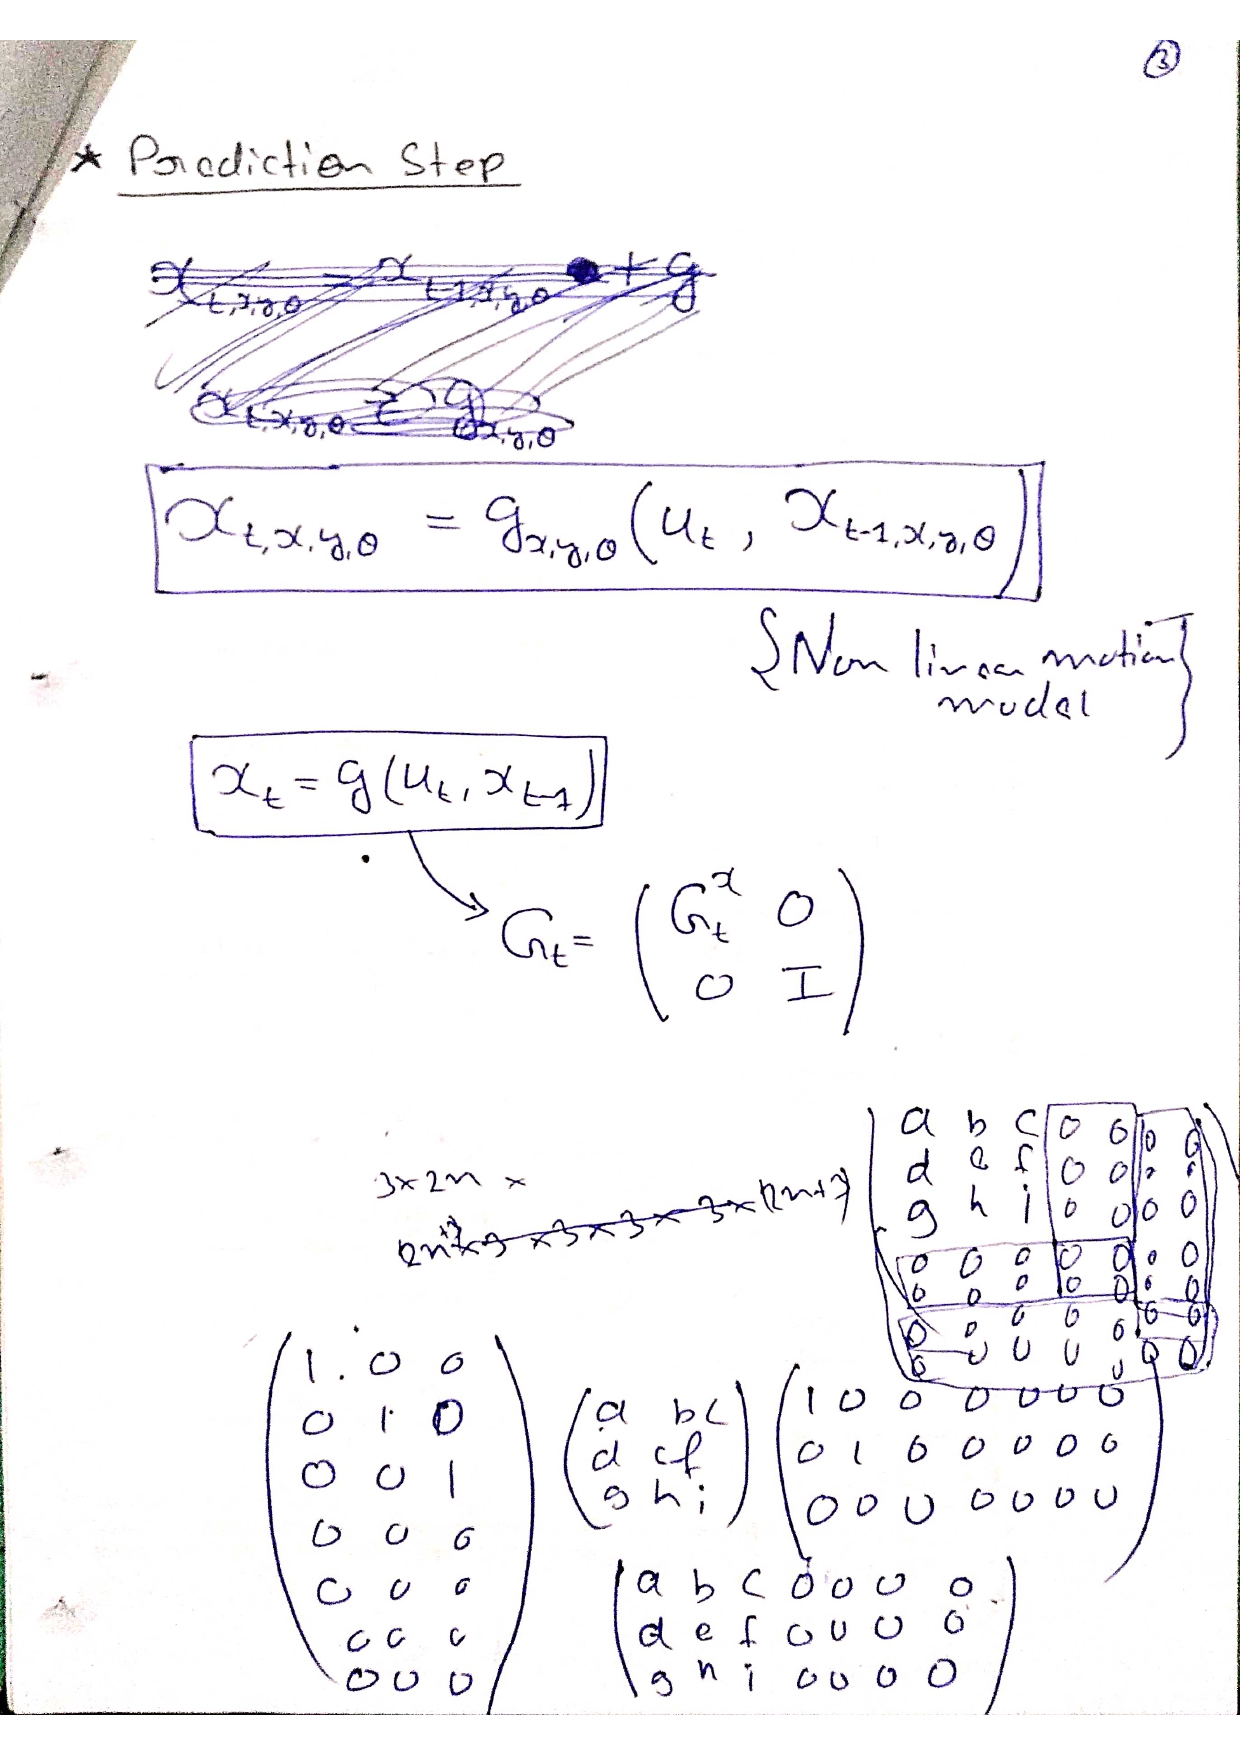 3
* Prediction Step
x_{t,x,y,θ} = x_{t-1,x,y,θ} + g
x_{t,x,y,θ} = g_{x,y,θ}
x_{t,x,y,θ} = g_{x,y,θ}(u_t, x_{t-1,x,y,θ})
{Non linear motion
model}
x_t = g(u_t, x_{t-1})
G_t = ( G_t^x 0
0 I )
a b c 0 0 0 0
d e f 0 0 0 0
g h i 0 0 0 0
0 0 0 0 0 0 0
0 0 0 0 0 0 0
0 0 0 0 0 0 0
0 0 0 0 0 0 0
3×2n ×
×3×3×3×
1 0 0
0 1 0
0 0 1
0 0 0
0 0 0
0 0 0
0 0 0
a b c
d e f
g h i
1 0 0 0 0 0 0
0 1 0 0 0 0 0
0 0 0 0 0 0 0
a b c 0 0 0 0
d e f 0 0 0 0
g h i 0 0 0 0